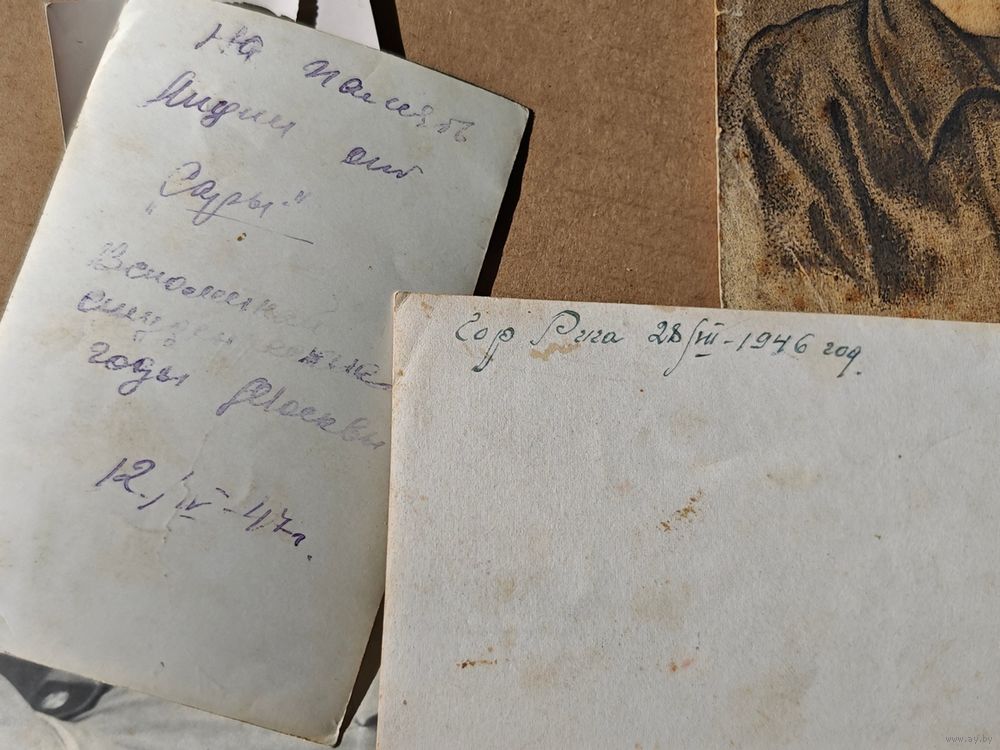 На память
Лидии от
„Сары“
Вспоминай
студенческие
годы Москвы
12/IV-47г.
Гор Рига 28/VII-1946 год.
www.ay.by